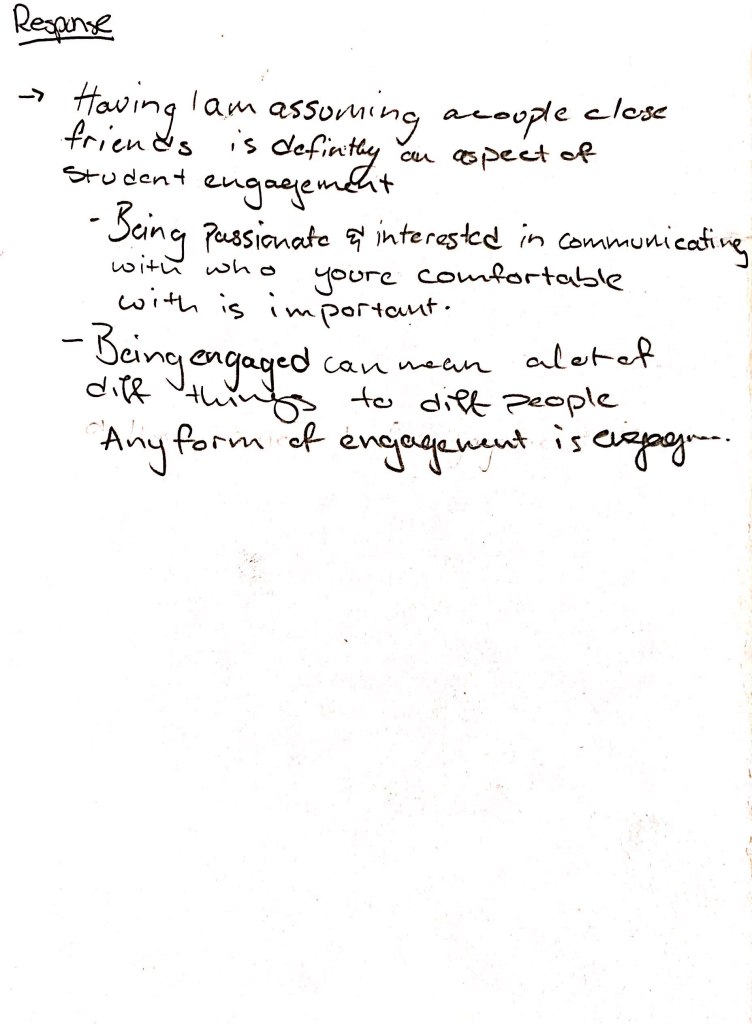 Response
→ Having I am assuming a couple close
friends is defintly an aspect of
student engagement
- Being passionate & interested in communicating
with who youre comfortable
with is important.
- Being engaged can mean alot of
diff things to diff people
Any form of engagement is